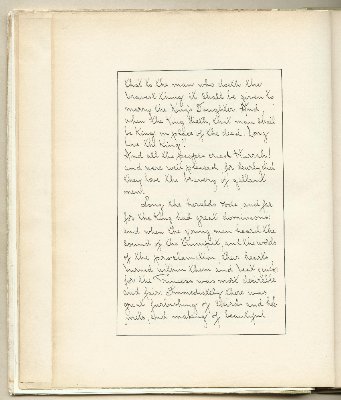 that to the man who doeth the
bravest thing it shall be given to
marry the King's Daughter. And,
when the King dieth, that man shall
be King in place of the dead. Long
live the King!"
And all the people cried Hurrah!
and were well pleased for
they love the bravery of gallant
men.
Along the heralds rode and far
for the King had great dominions:
and when the young men heard the
sound of the trumpets, and the words
of the proclamation their hearts
burned within them and beat
for the Princess was most desirable
and fair. Immediately there was
great furbishing of swords and
and making of beautiful